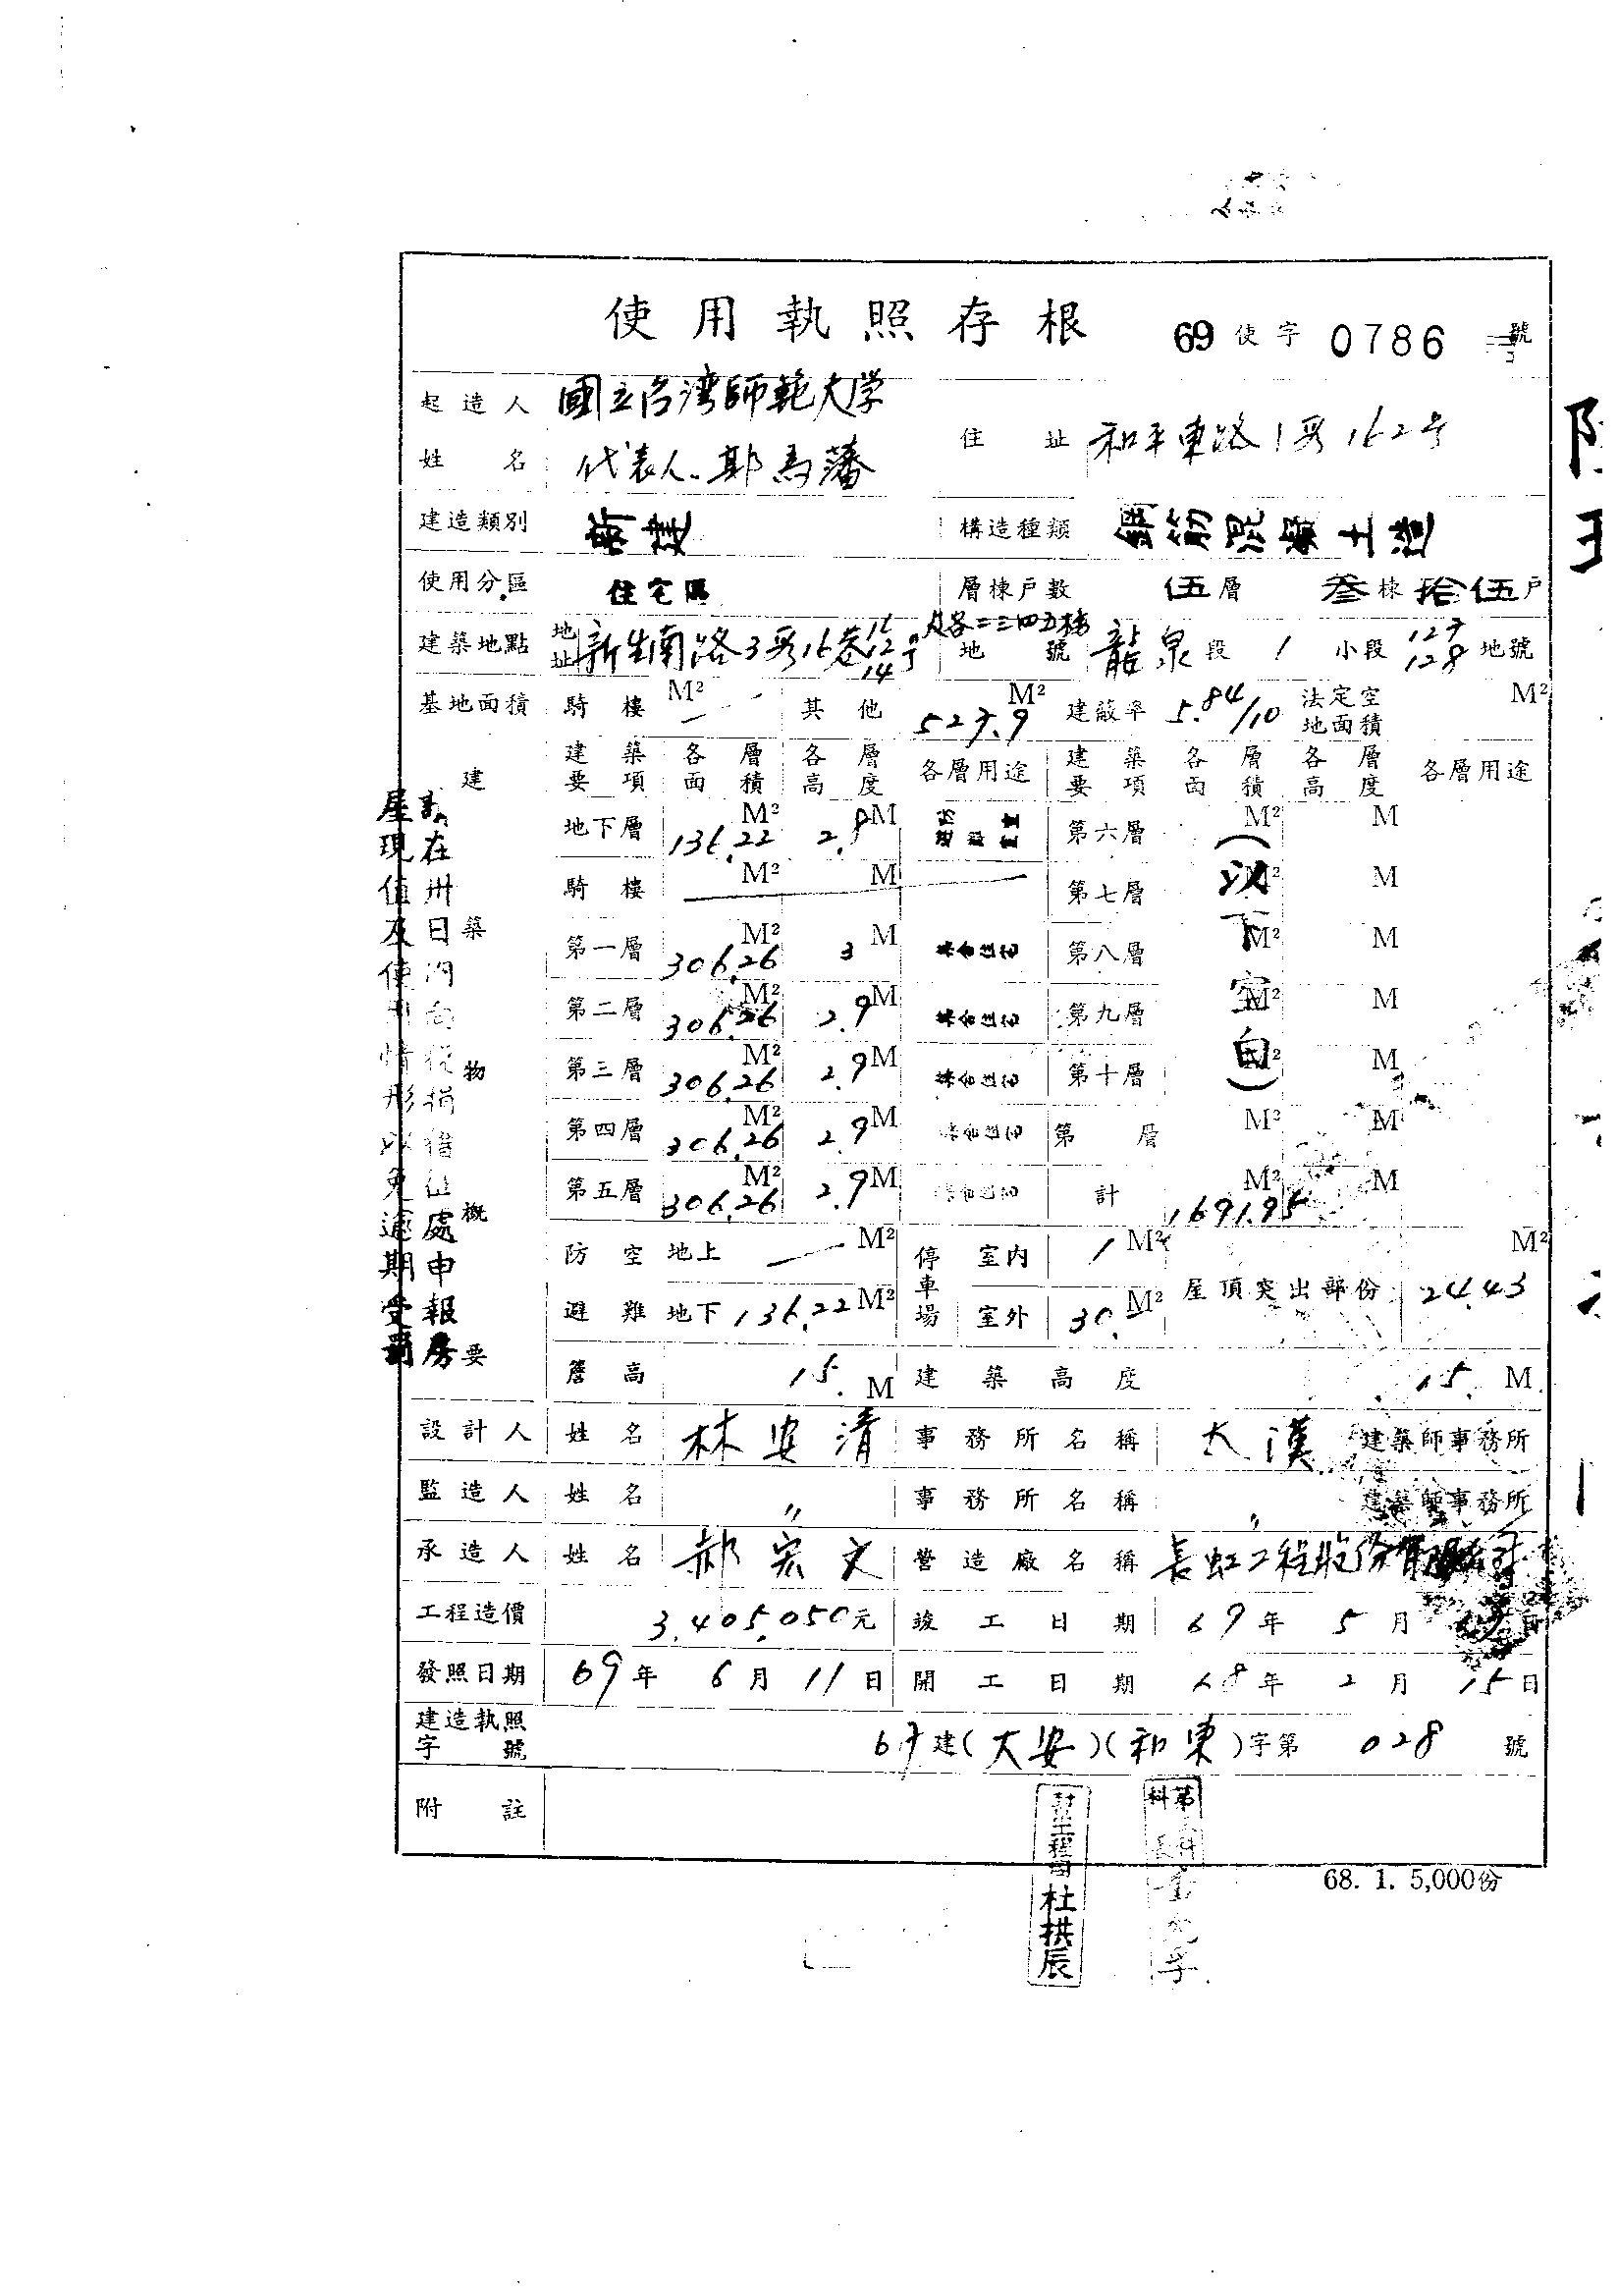 使用執照存根 69 使字 0786 號
起造人姓名 國立台湾師範大学 代表人.郭為藩 住址 和平東路1段162号
建造類別 新建 構造種類 鋼筋混凝土造
使用分區 住宅區 層棟戶數 伍層 叁棟 拾伍戶
建築地點 地址 新生南路3段16巷 12 14 16 号 及各二三四五樓 地號 龍泉段 1 小段 127 128 地號
基地面積 騎樓 M² — 其他 527.9 M² 建蔽率 5.84/10 法定空地面積 M²
建築物概要
建築要項 各層面積 各層高度 各層用途 建築要項 各層面積 各層高度 各層用途
地下層 136.22 M² 2.8 M 第六層 M² M
騎樓 M² M — 第七層 M² M
第一層 306.26 M² 3 M 集合住宅 第八層 M² M
第二層 306.26 M² 2.9 M 集合住宅 第九層 M² M
第三層 306.26 M² 2.9 M 集合住宅 第十層 M² M
第四層 306.26 M² 2.9 M 集合住宅 第 層 M² M
第五層 306.26 M² 2.9 M 集合住宅 計 1691.95 M² M
(以下空白)
防空避難 地上 — M² 地下 136.22 M² 停車場 室內 / M² 室外 30. M² 屋頂突出部份 24.43 M²
簷高 15. M 建築高度 15. M
設計人 姓名 林安清 事務所名稱 大漢 建築師事務所
監造人 姓名 〃 事務所名稱 〃 建築師事務所
承造人 姓名 郝宏文 營造廠名稱 長虹工程股份有限公司
工程造價 3,405,050元 竣工日期 69年 5月 日
發照日期 69年 6月 11日 開工日期 68年 2月 15日
建造執照字號 67建(大安)(和東)字第 028 號
附註
68. 1. 5,000份
工程司 杜拱辰
處申報房
屋現值及使用情形以免逾期受罰